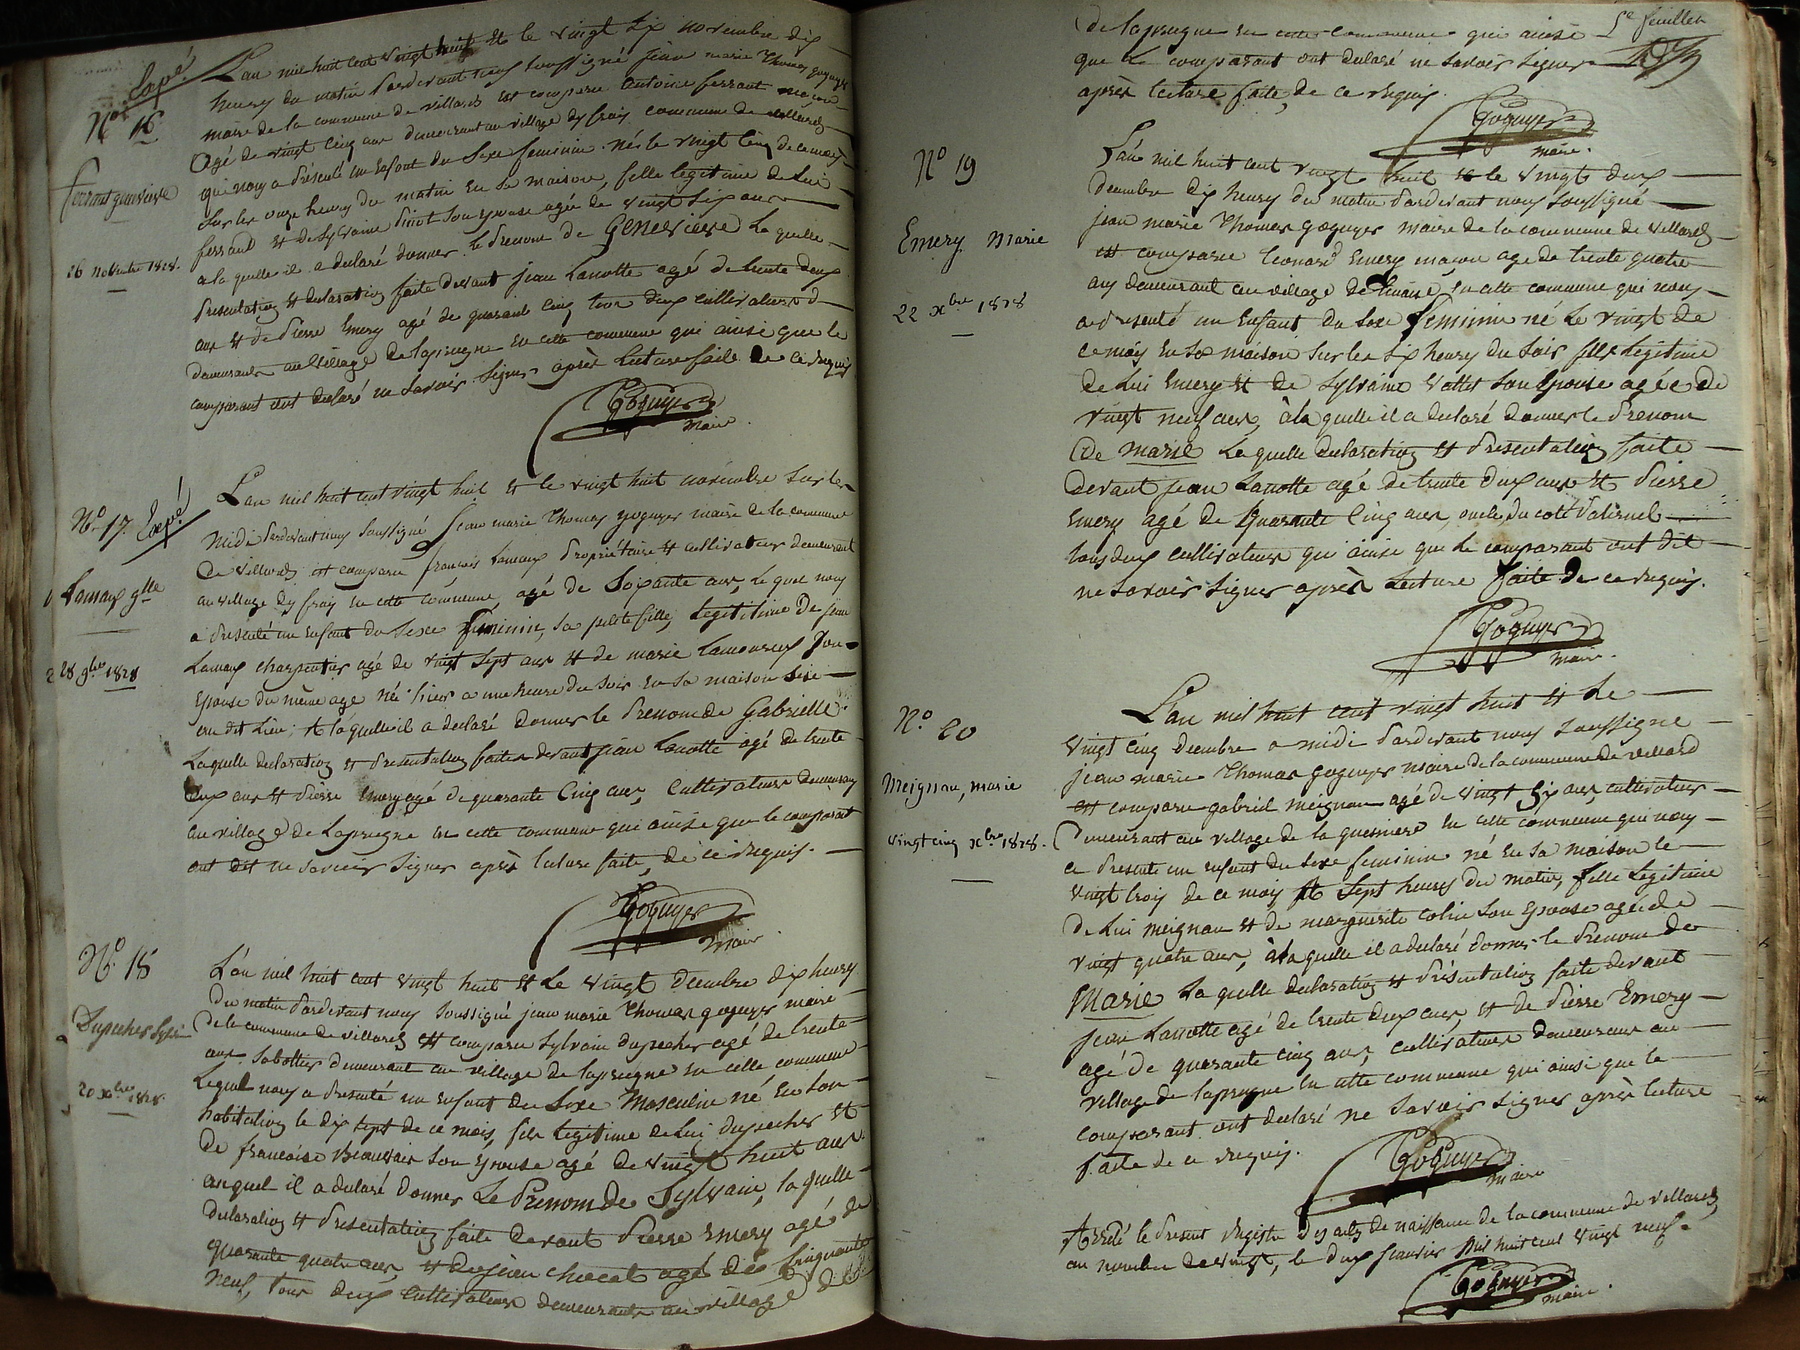 Expé
No. 16
ferrant genevieve
26 novembre 1828.
L'an mil huit cent vingt huit et le vingt six novembre dix
heures du matin Pardevant nous soussigné jean marie Thomas goguyer
maire de la commune de villards est comparu antoine ferrant maçon
agé de vingt cinq ans demeurant au village dy frais commune de villards
qui nous a Présenté un Enfant du Sexe feminin né le vingt cinq de ce mois
sur les onze heures du matin En sa maison, fille legitime de Lui
ferrant et de Sylvaine Pinot Son Epouse agée de vingt six ans
a la quelle il a declaré donner le Prenom de GENEVIEVE La quelle
Presentation et declaration faite devant jean Lanotte agé de trente deux
ans et de Pierre Emery agé de quarante cinq tous deux cultivateurs
demeurants au village de Lapreugne en cette commune qui ainsi que le
comparant ont declaré ne Savoir Signer après Lecture faite de ce requis
Goguyer
maire
No. 17. Expé
Lamaux glle
28 9bre 1828
L'an mil huit cent vingt huit et le vingt huit novembre Sur les
midi Pardevant nous soussigné Jean marie Thomas goguyer maire de la commune
de villards est comparu françois Lamaux Propriétaire et cultivateur demeurant
au village dy frais en cette commune, agé de Soixante ans, Le quel nous
a Presenté un Enfant du Sexe feminin, Sa petite fille, Legitime de jean
Lamaux charpentier agé de vingt Sept ans et de marie Lamoureux Son
Epouse du même age né hier a une heure du Soir En Sa maison Sise
au dit Lieu; A laquelle il a declaré donner le Prenom de Gabrielle
Laquelle declaration et Presentation faites devant jean Lanotte agé de trente
deux ans et Pierre Emery agé de quarante Cinq ans, Cultivateurs demeurans
au village de Lapreugne en cette commune qui ainsi que le comparant
ont dit ne savoir Signer après lecture faite, de ce requis.
Goguyer
maire
No. 18
Dupecher Sylvain
20 xbre 1828
L'an mil huit cent vingt huit et Le vingt decembre dix heures
du matin Pardevant nous Soussigné jean marie Thomas goguyer maire
de la commune de villards est comparu Sylvain dupecher agé de trente
ans Sabottier demeurant au village de lapreugne en cette commune
Lequel nous a Presenté un Enfant du Sexe Masculin né En Son
habitation le dix Sept de ce mois, fils legitime de Lui dupecher et
de francoise Beauvais Son Epouse agé de vingt huit ans
auquel il a declaré donner Le Prenom De Sylvain, la quelle
declaration et Presentation faite devant Pierre Emery agé de
quarante quatre ans, et de jean chocat agé de Cinquante
neuf, tous deux Cultivateurs demeurants au village de
5e feuillet
de lapreugne en cette commune qui ainsi
que le comparant ont declaré ne Savoir Signer
après lecture faite, de ce requis.
Goguyer
maire.
No 19
Emery Marie
22 xbre 1828
L'an mil huit cent vingt huit et le vingt deux
decembre dix heures du matin Pardevant nous soussigné
jean marie Thomas goguyer maire de la commune de villards
est comparu Leonard Emery maçon agé de trente quatre
ans demeurant au village de En cette commune qui nous
a presenté un Enfant du Sexe feminin né Le vingt de
ce mois En Sa maison Sur les six heures du Soir fille Legitime
de Lui Emery et de Sylvaine Son Epouse agée de
vingt neuf ans, à la quelle il a declaré donner le Prenom
de Marie La quelle declaration et Presentation faite
devant jean Lanotte agé de trente deux ans et Pierre
Emery agé de quarante Cinq ans, oncle du coté Paternel
tous deux cultivateurs qui ainsi que Le comparant ont dit
ne Savoir Signer après Lecture faite de ce requis.
Goguyer
maire.
No. 20
Meignan, marie
vingt cinq xbre 1828.
L'an mil huit cent vingt huit et Le
vingt cinq decembre a midi Pardevant nous Soussigné
jean marie Thomas goguyer maire de la commune de villard
est comparu gabriel meignan agé de vingt Six ans, cultivateur
demeurant au village de la guesniere En cette commune qui nous
a Presenté un enfant du Sexe feminin né En Sa maison le
vingt trois de ce mois à Sept heures du matin, fille Legitime
de Lui meignan et de marguerite colin Son Epouse agée de
vingt quatre ans, à la quelle il a declaré donner le Prenom de
Marie La quelle declaration et Présentation faite devant
jean Lanotte agé de trente deux ans, et de Pierre Emery
agé de quarante cinq ans, cultivateurs demeurans au
village de lapreugne En cette commune qui ainsi que le
comparant ont declaré ne Savoir Signer après lecture
faite de ce requis.
Goguyer
maire
Arrêté le Present Registre des actes de naissance de la commune de villards
au nombre de vingt, le deux Janvier Mil huit cent vingt neuf.
Goguyer
maire.